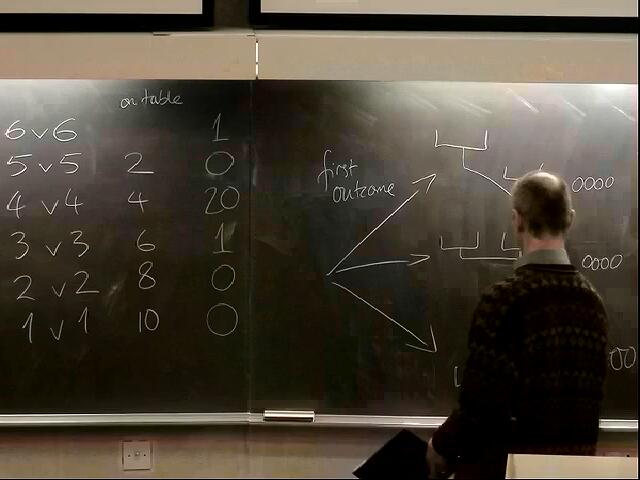 on table
6 v 6 1
5 v 5 2 0
4 v 4 4 20
3 v 3 6 1
2 v 2 8 0
1 v 1 10 0
first
outcome
0000
0000
00